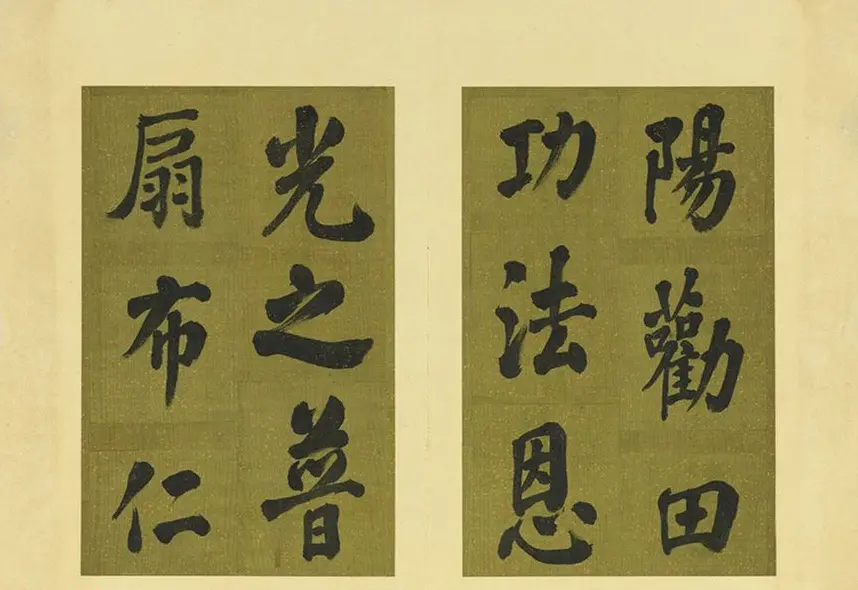 陽勸田
功法恩
光之普
扇布仁